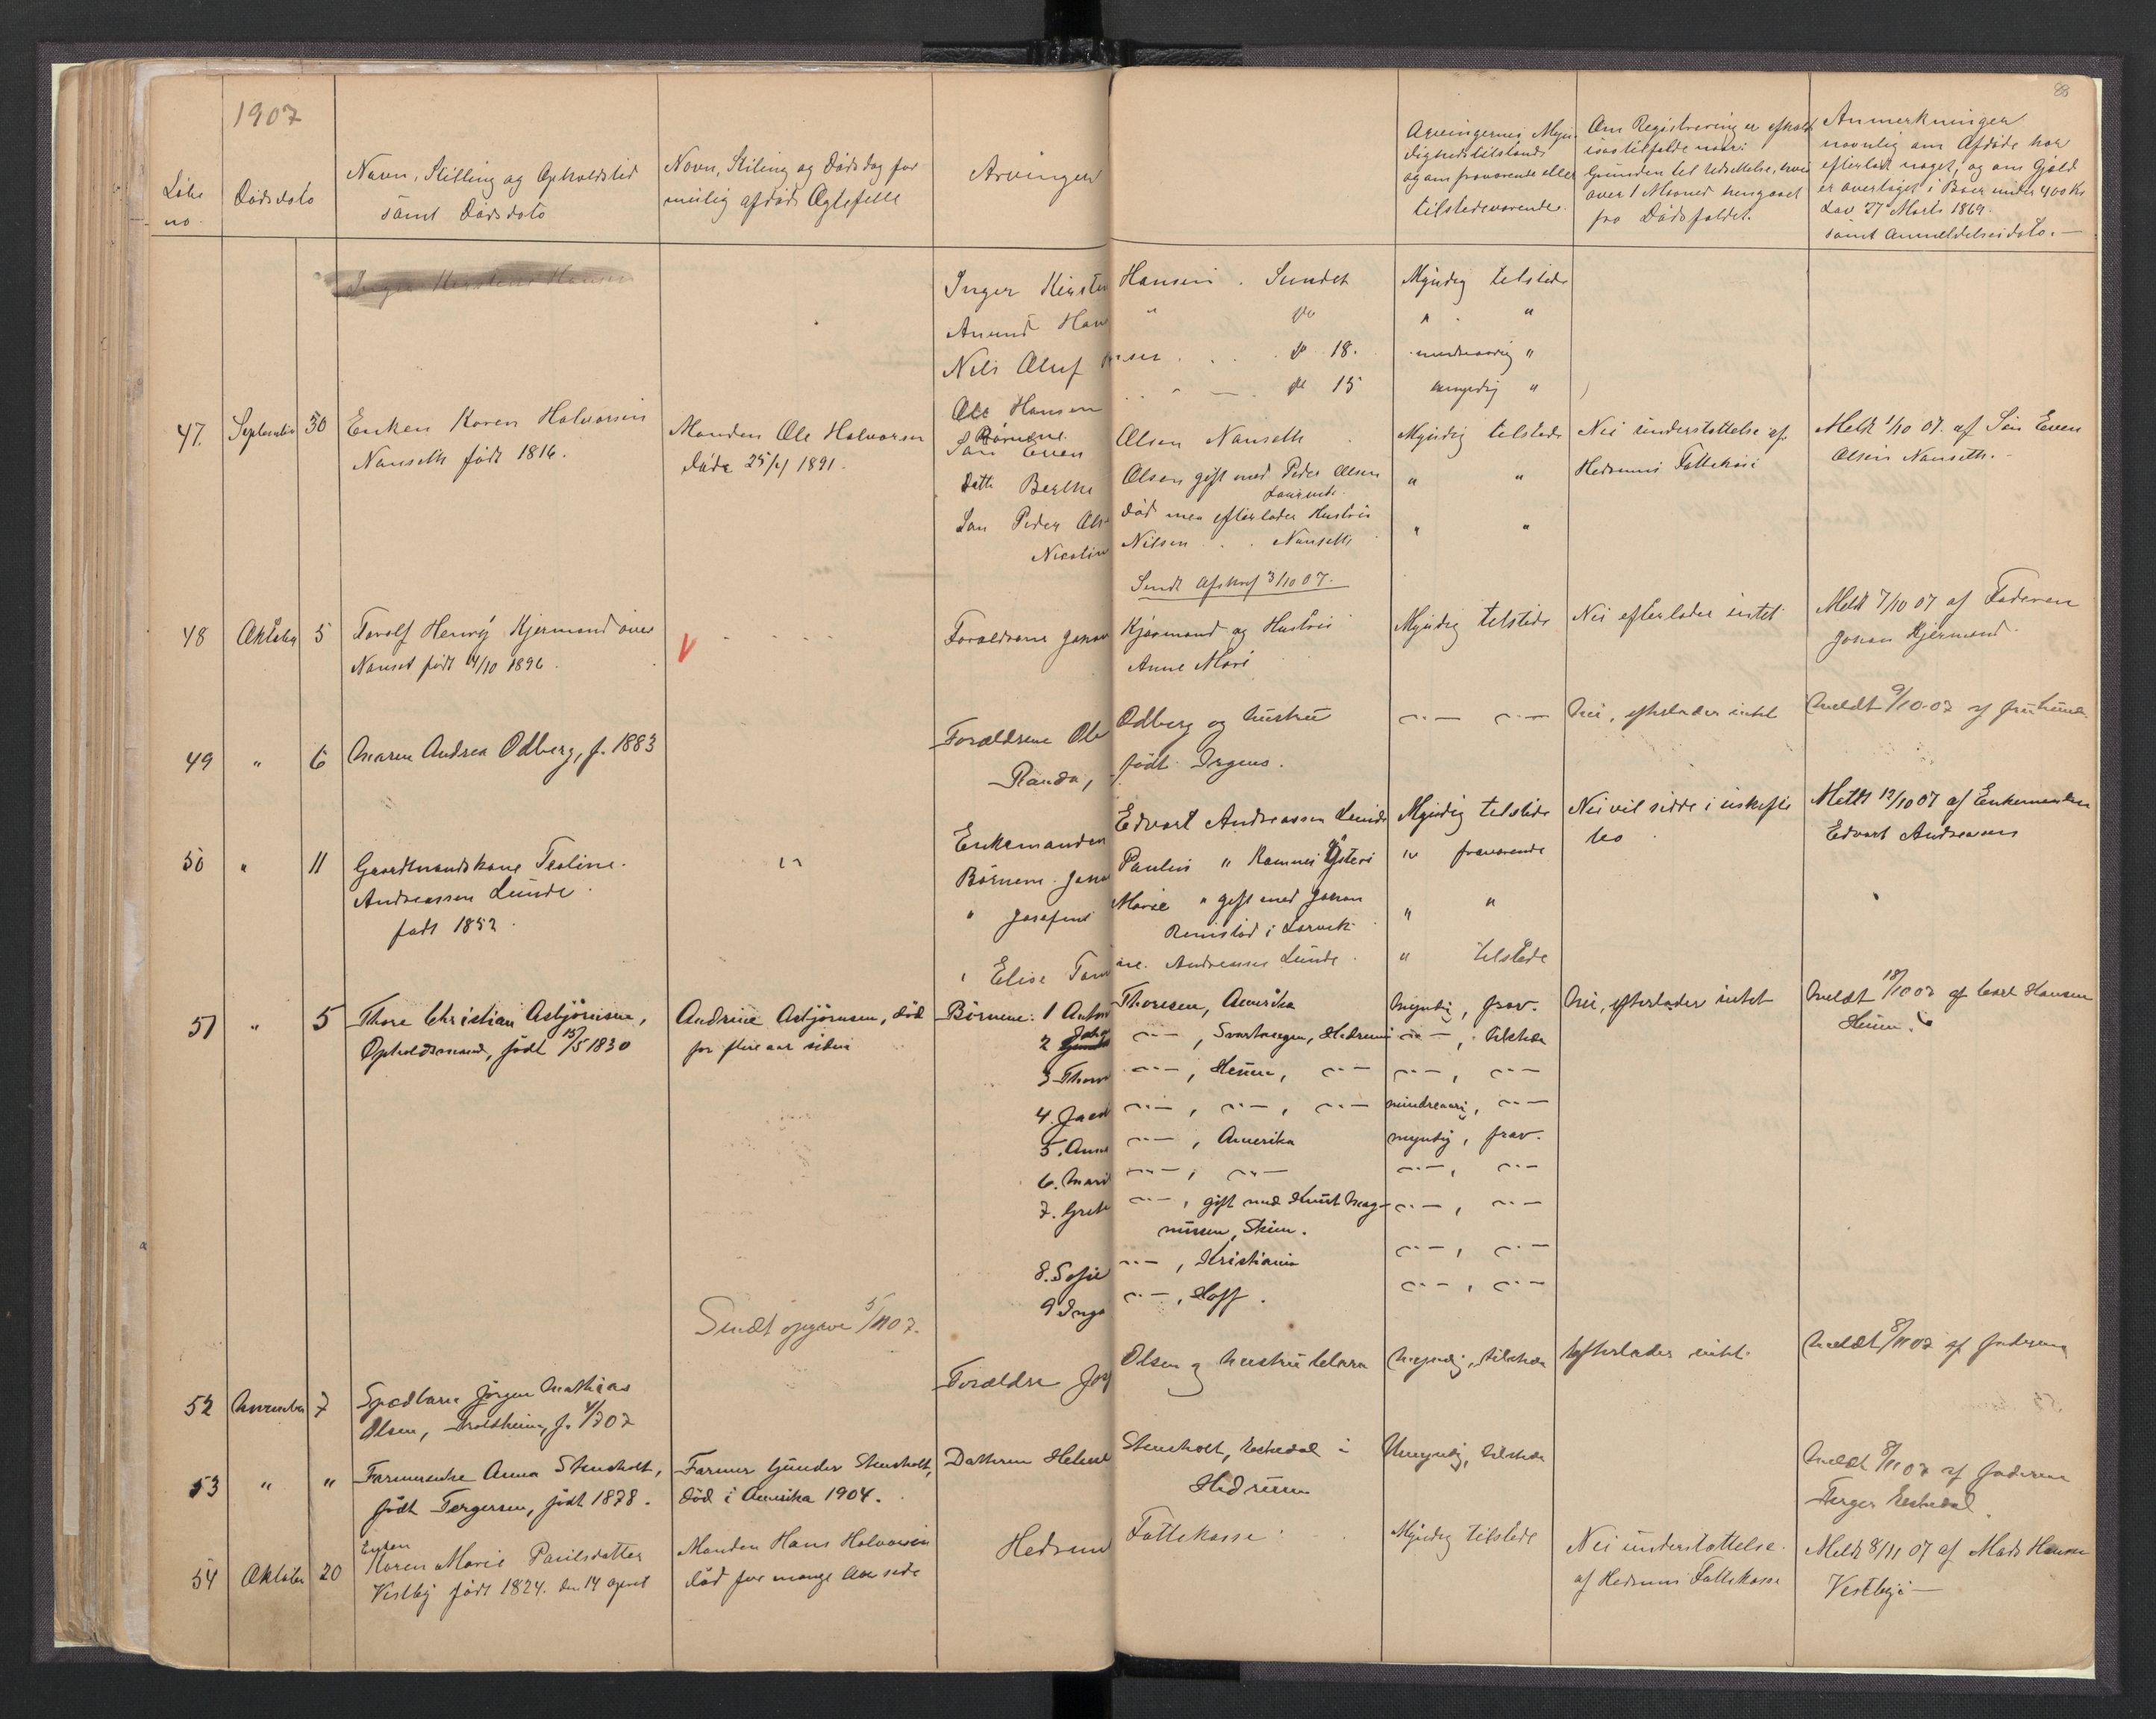 88
1907
Løbe no.
Dødsdato
Navn, Stilling og Opholdsted
samt Dødsdato
Navn, Stilling og Dødsdag for
mulig afdød Ægtefelle
Arvinger
Arvingernes Myn-
dighedstilstand
og om fraværende eller
tilstedeværende.
Om Registrering er afholdt
isåtilfelde naar:
Grunden til Udsettelse, hvis
over 1 Maaned hengaaet
fra Dødsfaldet.
Anmerkninger
navnlig om Afdøde har
efterladt noget, og om Gjeld
er overtaget i Boer under 400 Kr
Lov 27 Marts 1869.
samt Anmeldelsesdato.
Inger Kirstine Hansen
Inger Kirsten Hansen. Sundet Myndig tilstede
Anund Han " do " "
Nils Oluf sen do 18. mindreaarig "
Ole Hansen " do 15 umyndig "
47. September 30 Enken Karen Halvorsen
Nanseth født 1816.
Manden Ole Halvorsen
døde 25/4 1891.
Børnene
Søn Even Olsen Nanseth Myndig tilstede
Datt Berthe Olsen gift med Peder Olsen " "
Søn Peder Ols død men efterlader Hustru " "
Nicoline Nilsen Nanseth
Sendt Afskrif 3/10 07.
Nei understøttelse af
Hedrums Fattekasse
Meldt 1/10 07 af Søn Even
Olsen Nanseth.
48 Oktober 5 Torolf Henry Kjærmond øvre
Nanset født 4/10 1896.
V
Foraldrene Johan Kjærmond og Hustru
Anne Marie
Myndig tilstede
Nei efterlader intet
Meldt 7/10 07 af Faderen
Johan Kjærmond.
49 " 6 Maren Andrea Odberg, f. 1883
Forældrene Ole Odberg og hustru
Randa, født Irgens.
Nei, efterlader intet
Meldt 9/10-07 af
50 " 11 Gaardmandskone Teoline
Andreassen Lunde
født 1852
Enkemanden Edvart Andreassen Lunde Myndig tilstede
Børnene Johan Paulus " " fraværende
" Josefine Marie " gift med Johan " "
i Larvik
" Elise Andreassen Lunde " tilstede
Nei vil sidde i uskiftet
bo
Meldt 12/10 07 af Enkemanden
Edvart Andreassen
51 " 5 Thore Christian Asbjørnsen,
Opholdsmand, født 15/5 1830
Andrine Asbjørnsen, død
for flere aar siden
Børnene: 1 Anton Thoresen, Amerika myndig, frav.
2 Johan —"— , Svartangen, Hedrum —"— , tilstede
3 Thor —"— , Heum, —"— —"— , —"—
4. Jacob —"— , —"— , —"— mindreaarig, —"—
5. Anne —"— , Amerika myndig, frav.
6. Mari —"— , —"— —"— , —"—
7. Grete —"— , gift med Knut Mag-
nussen, Skien.
—"— , —"—
8. Sofie —"— , Kristiania —"— , —"—
9 Inga —"— , Hoff. —"— , —"—
Nei, efterlader intet
Meldt 18/10 07 af Carl Hansen
Heum.
Sendt opgave 5/11 07.
52 November 7 Spædbarn Jørgen Mathias
Olsen, f. 4/7 07
Forældre Olsen og hustru Clara
Myndig, tilstede
Efterlader intet
Meldt 8/11 07 af faderen
53 " " Farmerenke Anna Stensholt,
født Tergersen, født 1878.
Farmer Gunder Stensholt,
død i Amerika 1904.
Datteren Helene Stensholt, i
Hedrum
Umyndig, tilstede
Meldt 8/11 07 af faderen
Terger
54 Oktober 20 Enken
Karen Marie Paulsdatter
Vestby født 1824. den 14 April
Manden Hans Halvorsen
død for mange Aar side
Hedrum Fattekasse
Myndig tilstede
Nei understøttelse
af Hedrums Fattekasse
Meldt 8/11 07 af Mads Hansen
Vestby